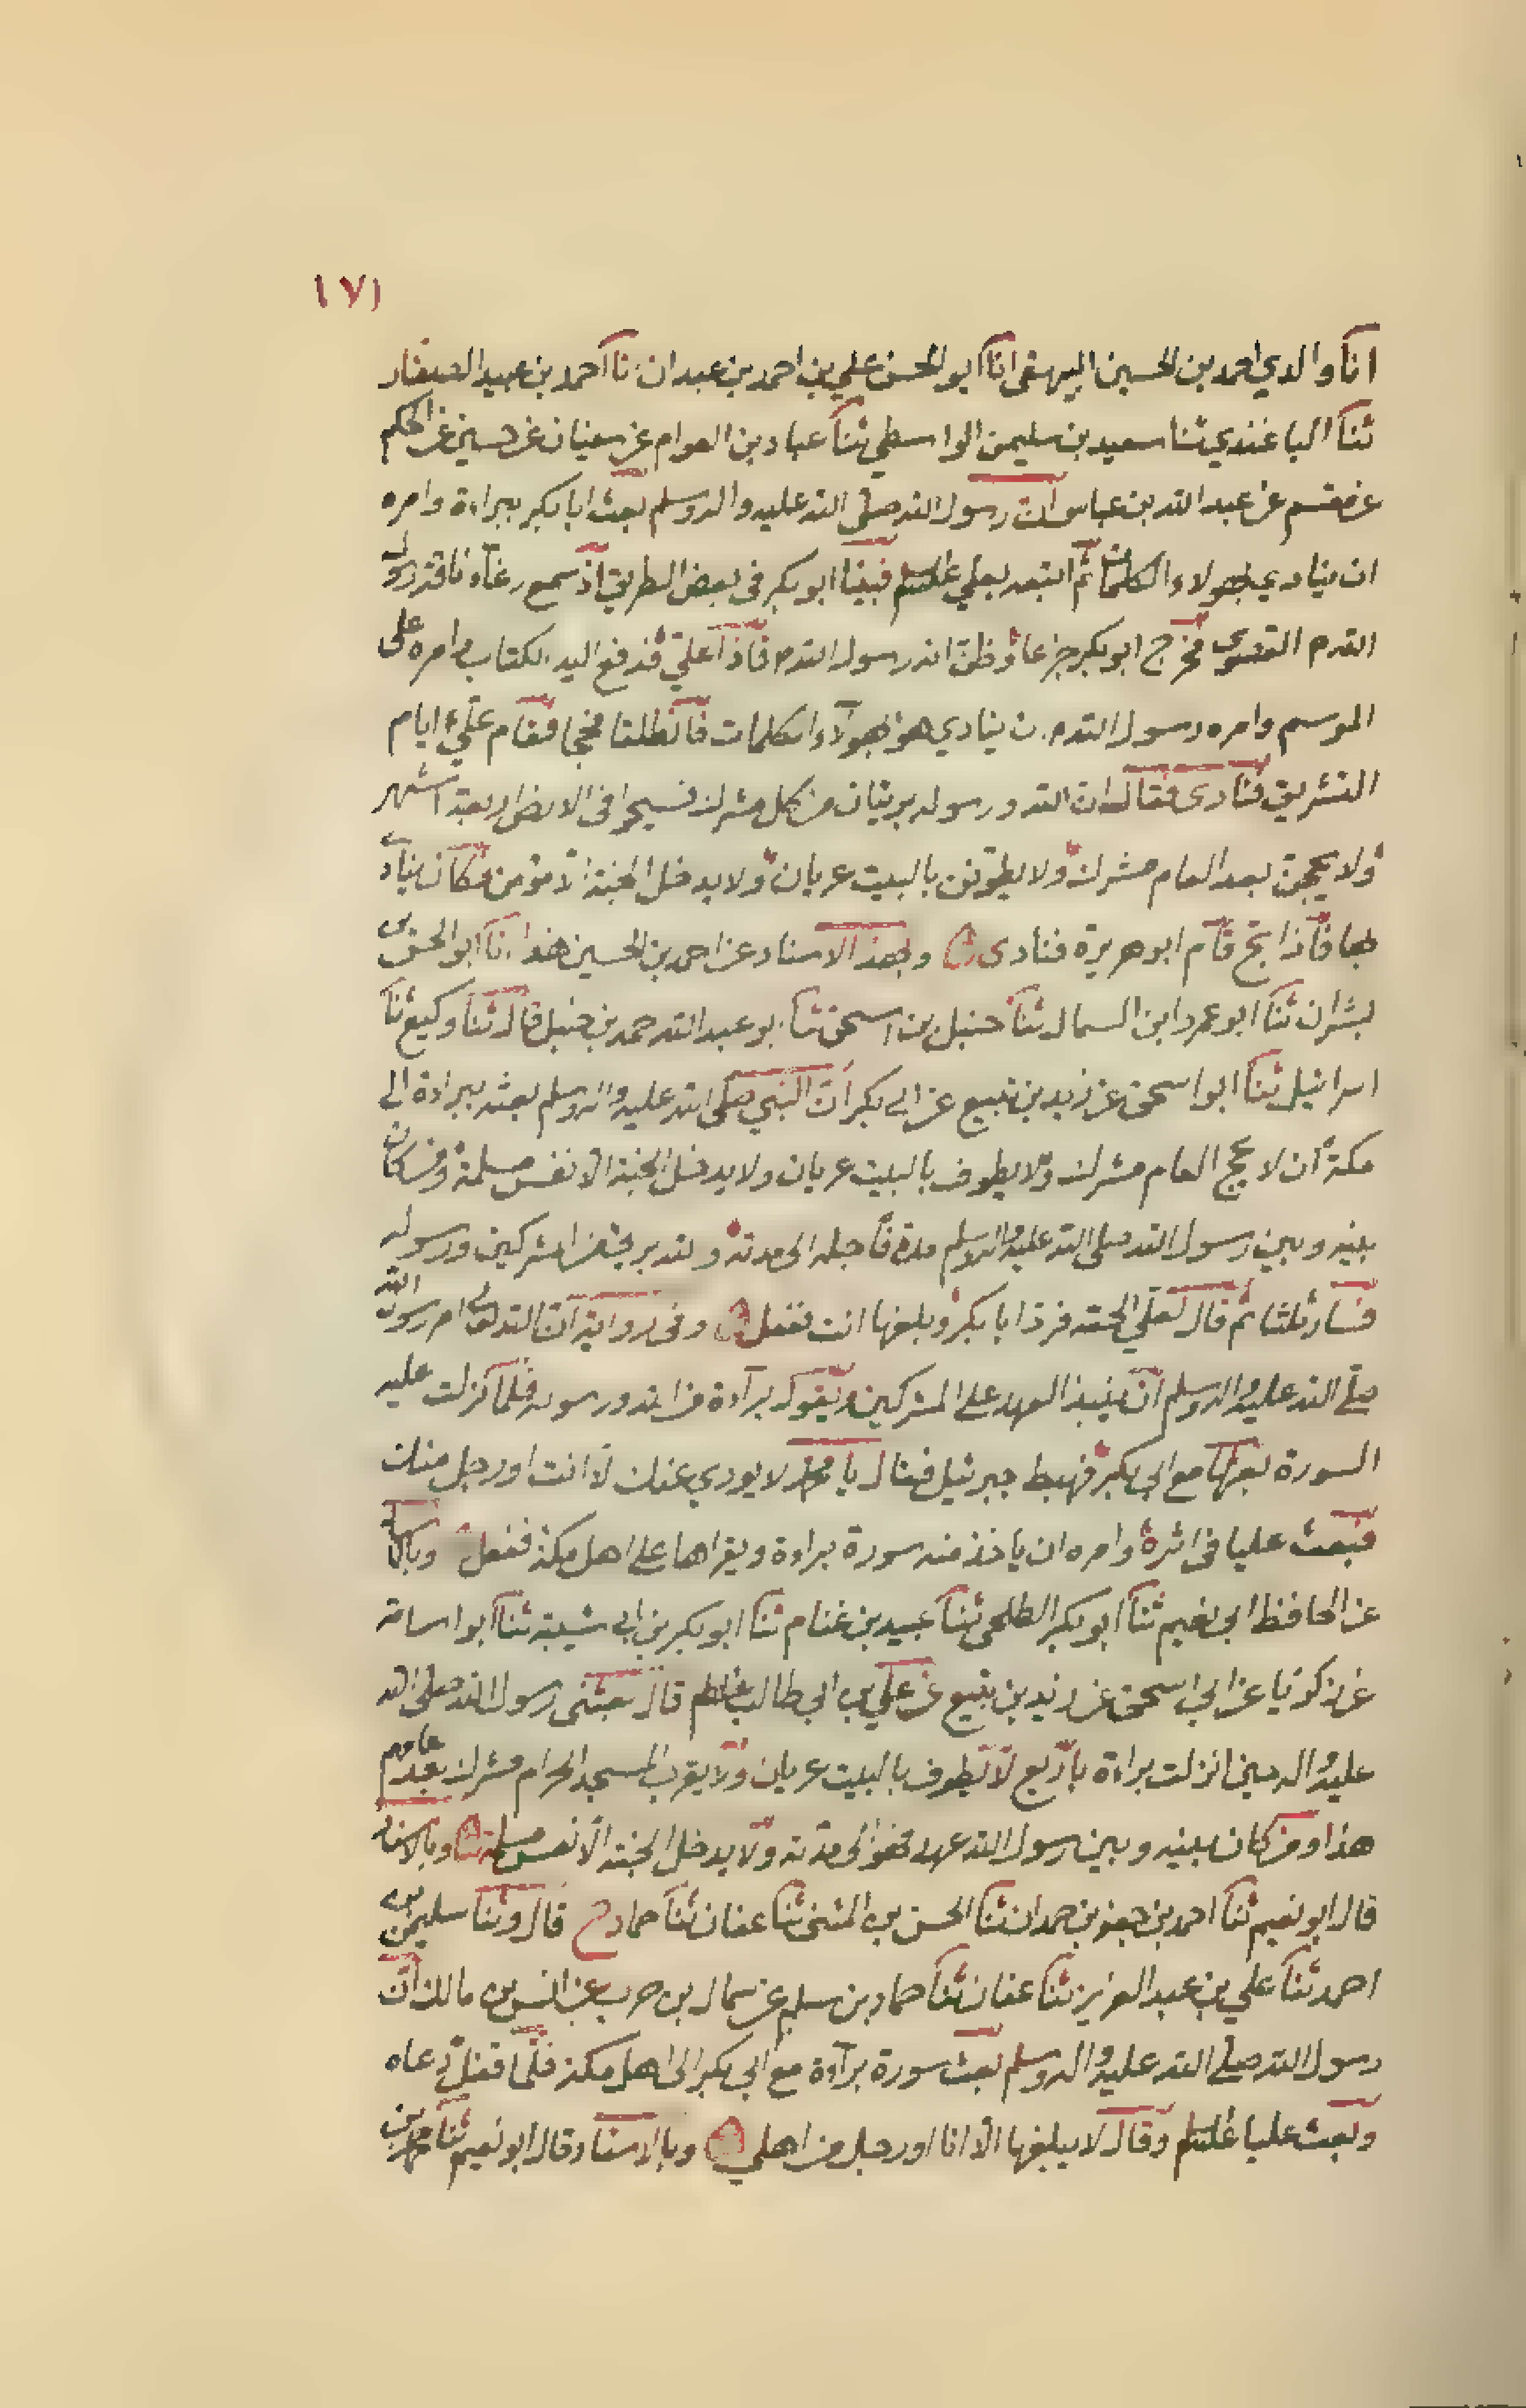 ١٧١
انا والدي احمد بن الحسين البيهقى انا ابو الحسن علي بن احمد بن عبدان انا احمد بن عبيد الصفار
ثنا الباغندي ثنا سعيد بن سليمن الواسطي ثنا عباد بن العوام عن سفيان عن حسين عن الحكم
عن مقسم عن عبد الله بن عباس ان رسول الله صلى الله عليه واله وسلم بعث ابا بكر ببراءة وامره
ان ينادي بهولاء الكلمات ثم اتبعه بعلي فبينا ابو بكر فى بعض الطريق اذ سمع رغآء ناقة رسول
الله م القصوى فخرج ابو بكر جزعا وظن انه رسول الله م فاذا علي فدفع اليه الكتاب وامره على
الموسم وامره رسول الله م ان ينادي هو بهولآء الكلمات فانطلقا فحجا فقام علي ايام
التشريق فنادى فقال ان الله ورسوله بريئان من كل مشرك فسيحوا فى الارض اربعة اشهر
ولا يحجن بعد العام مشرك ولا يطوفن بالبيت عريان ولا يدخل الجنة الا مؤمن فكان ينادى
بها فاذا بح قام ابو هريرة فنادى وبهذا الاسناد عن احمد بن الحسين هذا انا ابو الحسن بن
بشران ثنا ابو عمرو ابن السمال ثنا حنبل بن اسحق ثنا ابو عبد الله احمد بن حنبل قال ثنا وكيع ثنا
اسرائيل ثنا ابو اسحق عن زيد بن يثيع عن ابي بكر ان النبي صلى الله عليه واله وسلم بعثه ببراءة الى
مكة ان لا يحج العام مشرك ولا يطوف بالبيت عريان ولا يدخل الجنة الا نفس مسلمة ومن كان
بينه وبين رسول الله صلى الله عليه واله وسلم مدة فاجله الى مدته والله بريء من المشركين ورسوله
فسار ثلثا ثم قال لعلي الحقه فرد ابا بكر وبلغها انت ففعل وفى رواية ان الله تعالى امر رسول الله
صلى الله عليه واله وسلم ان ينبذ العهد على المشركين ويقول برآءة من الله ورسوله فلما نزلت عليه
السورة بعثها مع ابي بكر فهبط جبرئيل فقال يا محمد لا يودي عنك الا انت او رجل منك
فبعث عليا فى اثره وامره ان ياخذ منه سورة براءة ويقراها على اهل مكة ففعل وبالاسناد
عن الحافظ ابى نعيم ثنا ابو بكر الطلحى ثنا عبيد بن غنام ثنا ابو بكر بن ابي شيبة ثنا ابو اسامة
عن زكريا عن ابي اسحق عن زيد بن يثيع عن علي بن ابي طالب قال بعثنى رسول الله صلى الله
عليه واله حين انزلت براءة باربع لا يطوف بالبيت عريان ولا يقرب المسجد الحرام مشرك بعد عامهم
هذا ومن كان بينه وبين رسول الله عهد فهو الى مدته ولا يدخل الجنة الا نفس مسلمة وبالاسناد
قال ابو نعيم ثنا احمد بن جعفر بن حمدان ثنا الحسن بن المثنى ثنا عفان ثنا حماد ح قال وثنا سليمن بن
احمد ثنا علي بن عبد العزيز ثنا عفان ثنا حماد بن سلم عن سمال بن حرب عن انس بن مالك ان
رسول الله صلى الله عليه واله وسلم بعث سورة برآءة مع ابي بكر الى اهل مكة فلما قفل دعاه
وبعث عليا وقال لا يبلغها الا انا او رجل من اهلي وبالاسناد قال ابو نعيم ثنا محمد بن